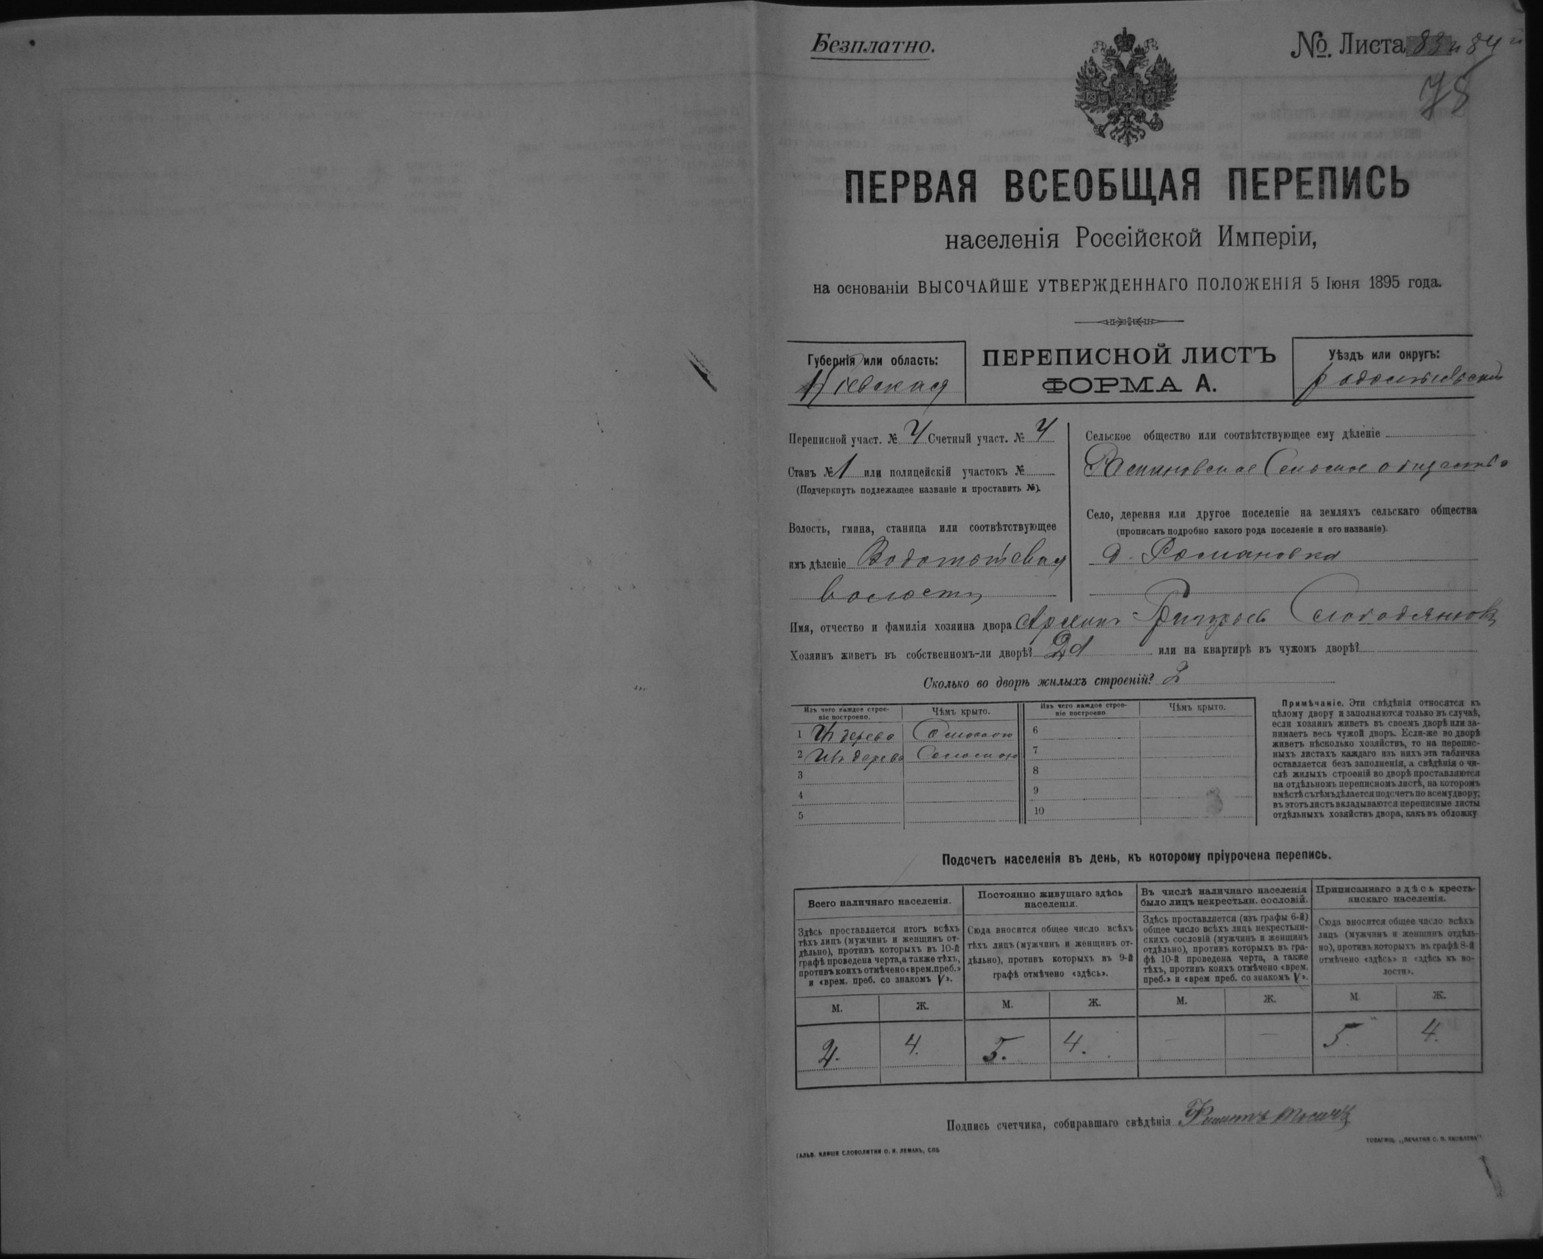 Безплатно.
№. Листа 84
78
ПЕРВАЯ ВСЕОБЩАЯ ПЕРЕПИСЬ
населенія Россійской Имперіи,
на основаніи ВЫСОЧАЙШЕ УТВЕРЖДЕННАГО ПОЛОЖЕНІЯ 5 Іюня 1895 года.
Губернія или область:
Кіевская
ПЕРЕПИСНОЙ ЛИСТЪ
ФОРМА А.
Уѣздъ или округъ:
Радомысльскій
Переписной участ. № 4 Счетный участ. № 4
Станъ № 1 или полицейскій участокъ №
(Подчеркнуть подлежащее названіе и проставить №).
Волость, гмина, станица или соотвѣтствующее
имъ дѣленіе
волость
Сельское общество или соотвѣтствующее ему дѣленіе
Сельское общество
Село, деревня или другое поселеніе на земляхъ сельскаго общества
(прописать подробно какого рода поселеніе и его названіе).
д. Романовка
Имя, отчество и фамилія хозяина двора Архипъ
Хозяинъ живетъ въ собственномъ-ли дворѣ? Да или на квартирѣ въ чужомъ дворѣ?
Сколько во дворѣ жилыхъ строеній? 2
Изъ чего каждое строе-
ніе построено.
Чѣмъ крыто.
Изъ чего каждое строе-
ніе построено.
Чѣмъ крыто.
1 Изъ дерева Соломою
2 Изъ дерева Соломою
3
4
5
6
7
8
9
10
Примѣчаніе. Эти свѣдѣнія относятся къ
цѣлому двору и заполняются только въ случаѣ,
если хозяинъ живетъ въ своемъ дворѣ или за-
нимаетъ весь чужой дворъ. Если-же во дворѣ
живетъ нѣсколько хозяйствъ, то на перепис-
ныхъ листахъ каждаго изъ нихъ эта табличка
оставляется безъ заполненія, а свѣдѣнія о чи-
слѣ жилыхъ строеній во дворѣ проставляются
на отдѣльномъ переписномъ листѣ, на которомъ
вмѣстѣ съ тѣмъ дѣлается подсчетъ по всему двору;
въ этотъ листъ вкладываются переписные листы
отдѣльныхъ хозяйствъ двора, какъ въ обложку
Подсчетъ населенія въ день, къ которому пріурочена перепись.
Всего наличнаго населенія.
Здѣсь проставляется итогъ всѣхъ
тѣхъ лицъ (мужчинъ и женщинъ от-
дѣльно), противъ которыхъ въ 10-й
графѣ проведена черта, а также тѣхъ,
противъ коихъ отмѣчено «врем. преб.»
и «врем. преб. со знакомъ V».
Постоянно живущаго здѣсь
населенія.
Сюда вносится общее число всѣхъ
тѣхъ лицъ (мужчинъ и женщинъ от-
дѣльно), противъ которыхъ въ 9-й
графѣ отмѣчено «здѣсь».
Въ числѣ наличнаго населенія
было лицъ некрестьян. сословій.
Здѣсь проставляется (изъ графы 6-й)
общее число всѣхъ лицъ некрестьян-
скихъ сословій (мужчинъ и женщинъ
отдѣльно), противъ которыхъ въ гра-
фѣ 10-й проведена черта, а также
тѣхъ, противъ коихъ отмѣчено «врем.
преб.» и «врем преб. со знакомъ V».
Приписаннаго здѣсь кресть-
янскаго населенія.
Сюда вносится общее число всѣхъ
лицъ (мужчинъ и женщинъ отдѣль-
но), противъ которыхъ въ графѣ 8-й
отмѣчено «здѣсь» и «здѣсь въ во-
лости».
М. Ж. М. Ж. М. Ж. М. Ж.
4. 5. 4. 5. 4.
Подпись счетчика, собиравшаго свѣдѣнія
ГАЛЬВ. КЛИШЕ СЛОВОЛИТНИ О. И. ЛЕМАНЪ, СПБ